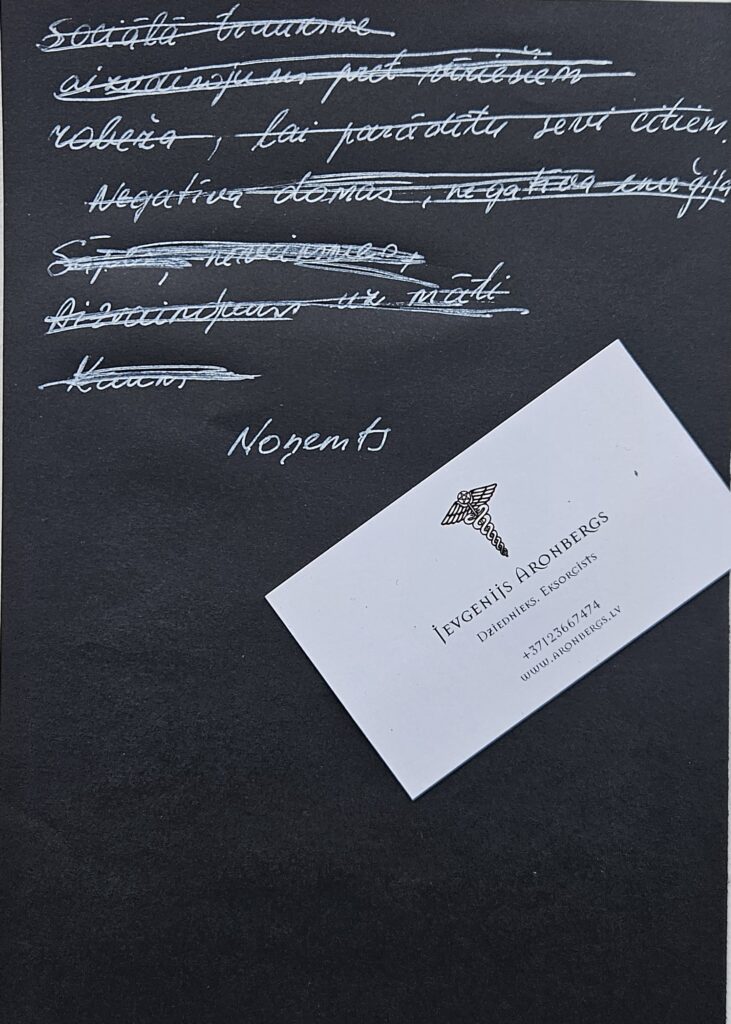 Sociālā trauksme
aizvainojums pret vīriešiem
robeža, lai parādītu sevi citiem.
Negatīva domas, negatīva enerģija
Sāpes,
Aizvainojums uz māti
Kauns
Noņemts
Jevgenijs Aronbergs
Dziednieks. Eksorcists
+37123667474
www.aronbergs.lv